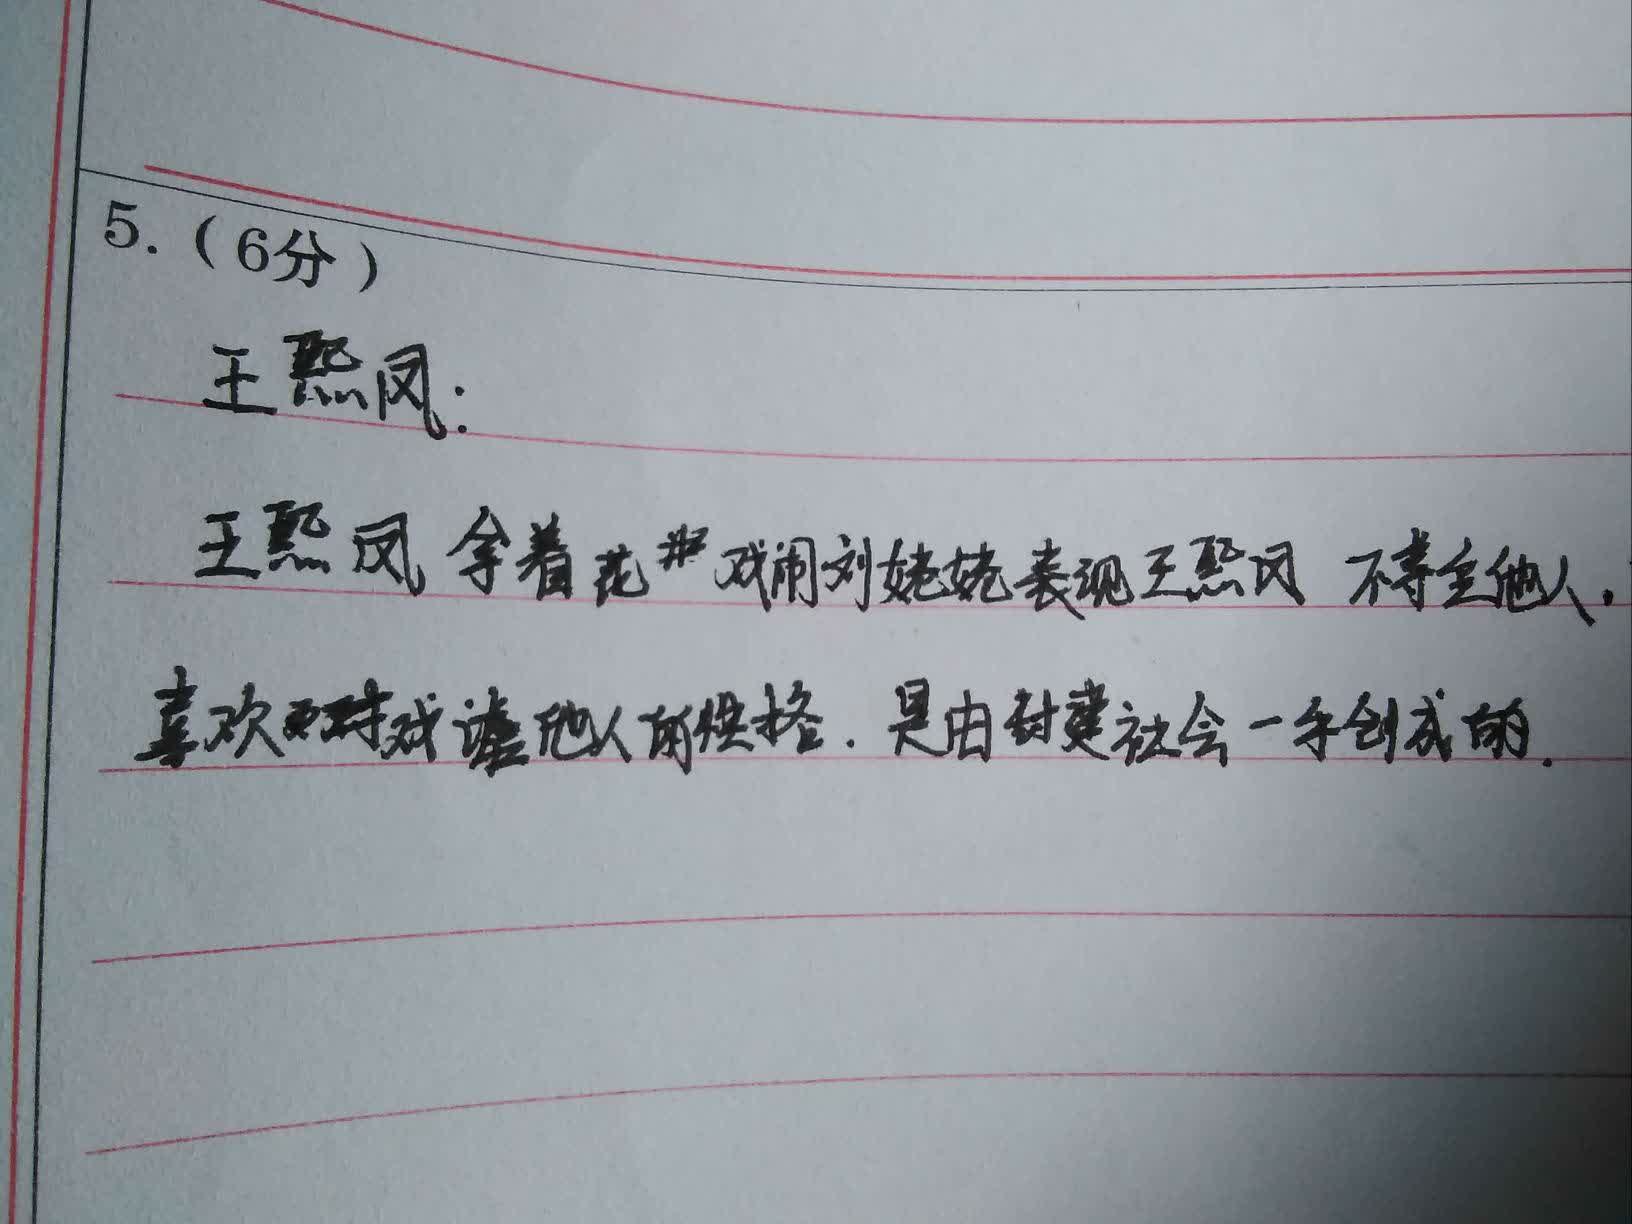 5.（6分）
王熙凤：
王熙凤拿着花 戏闹刘姥姥表现王熙凤 不尊重他人，
喜欢 戏谑他人的性格．是由封建社会一手创成的．